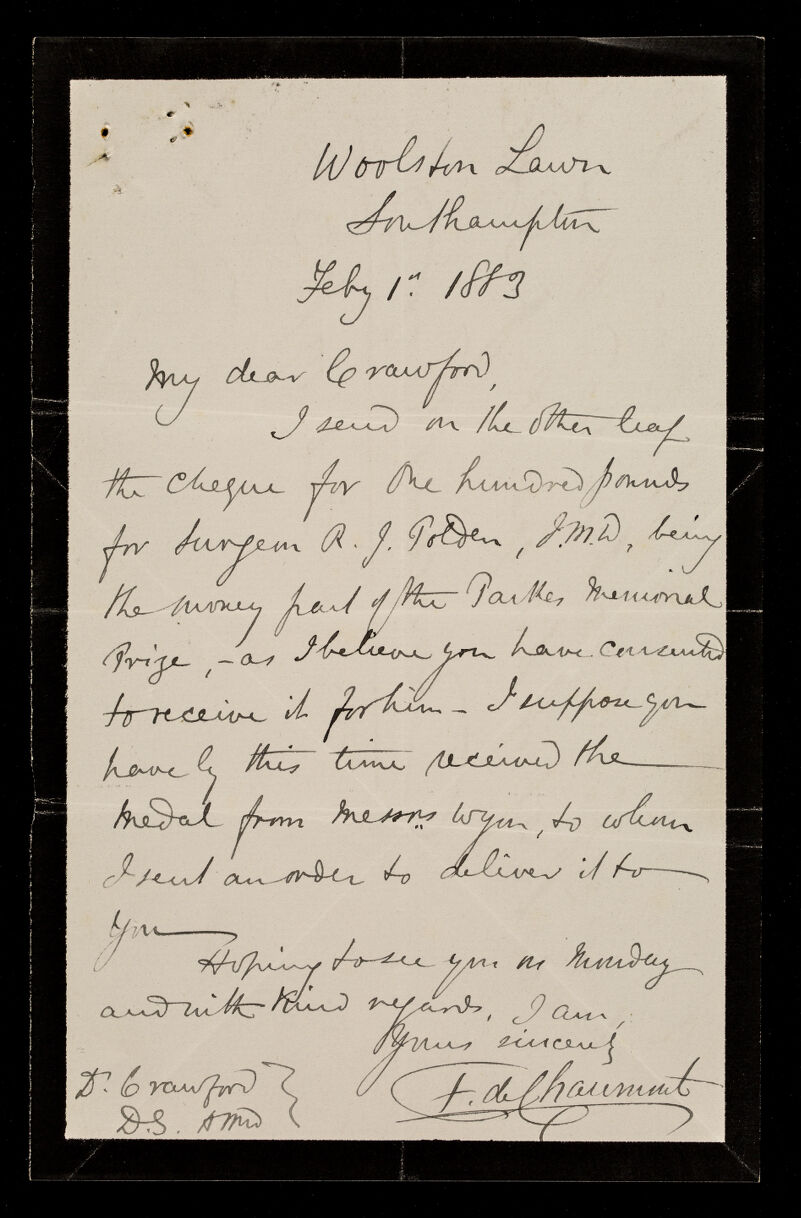 Woolston Lawn
Southampton
Feby 1st. 1883
My dear Crawford,
I send on the other leaf
the cheque for One hundred pounds
for Surgeon R. J. Polden, I.M.D, being
the money part of the Parkes Memorial
Prize, - as I believe you have consented
to receive it for him - I suppose you
have by this time received the
Medal from Messrs Wyon, to whom
I sent an order to deliver it to
you
Hoping to see you on Monday
and with Kind regards, I am,
Yours sincerely
F. de Chaumont
Dr. Crawford
D.S. AMD